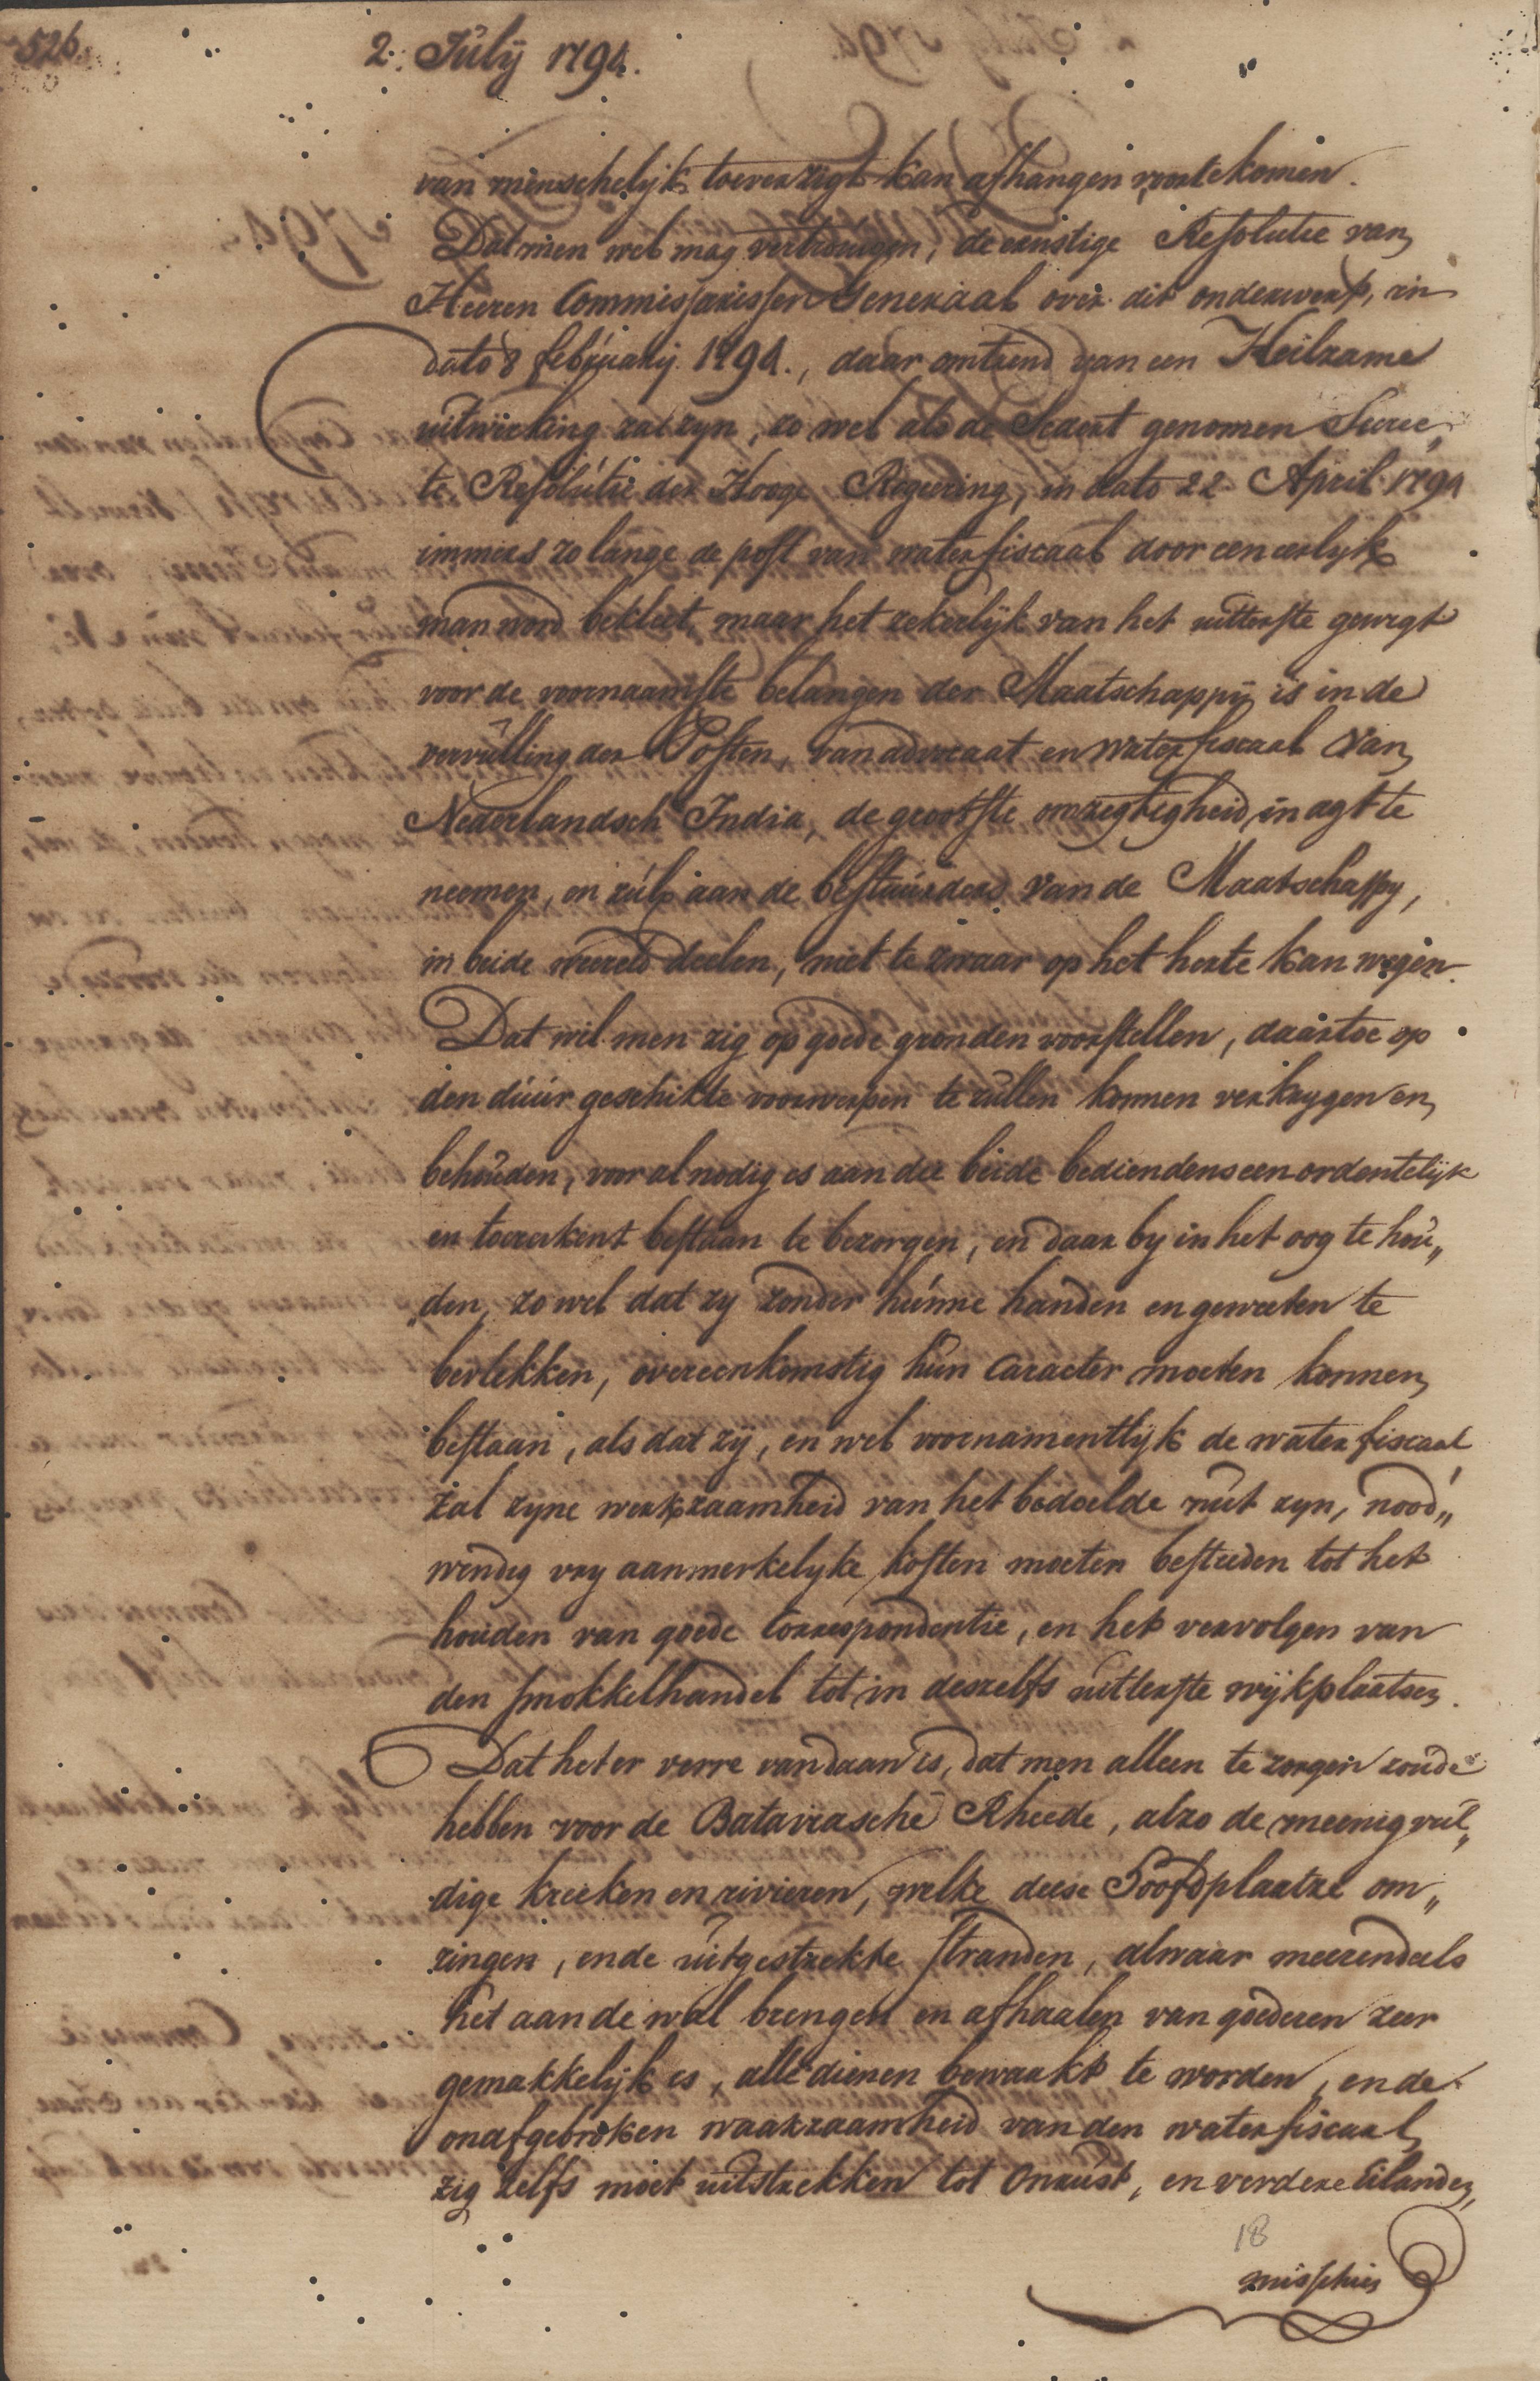 526.
2. Julij 1794.
van menschelijk toeverzigt kan afhangen voortekomen.
Dat men wel mag vertrouwen, de ernstige Resolutie van
Heeren Commissarissen Generaal over dit onderwerp, in
dato 8 februarij 1794., daar omtrend van een Heilzame
uitwerking zal zyn, zo wel als de Sedert genomen Secree„
te Resolutie der Hooge Regeering, in dato 22 April 1794
immers zo lange de post van waterfiscaal door een eerlyk
man word bekleet, maar het zekerlijk van het uitterste gewigt
voor de voornaamste belangen der Maatschappij is in de
vervulling der Posten, van advocaat en waterfiscaal van
Nederlandsch India, de grootste omzegtigheid in agt te
neemen, en zulx aan de bestuurders van de Maatschappy,
in beide weereld deelen, niet te zwaar op het herte kan wegen.
Dat wil men zig op goede gronden voorstellen, daartoe op
den duur geschikte voorwerpen te zullen konnen verkrygen en
behouden, voor al nodig is aan die beide bediendens een ordentelijk
en toereikent bestaan te bezorgen, en daar by in het oog te hou„
den, zo wel dat zy zonder hunne handen en geweeten te
bevlekken, overeenkomstig hun Caracter moeten konnen
bestaan, als dat zij, en wel voornamentlijk de waterfiscaal
zal zyne werkzaamheid van het bedoelde nut zyn, nood„
wendig vry aanmerkelyke kosten moeten besteeden tot het
houden van goede Correspondentie, en het vervolgen van
den smokkelhandel tot in deszelfs uitterste wijkplaatsen.
Dat het er verre van daan is, dat men alleen te zorgen zoude
hebben voor de Bataviasche Rheede, alzo de meenigvul„
dige kreeken en rivieren, welke deese Hoofdplaatze om„
ringen, en de uitgestrekte stranden, alwaar meerendeels
het aan de wal brengen en afhaalen van goederen zeer
gemakkelijk is, alle dienen bewaakt te worden, en de
onafgebroken waakzaamheid van den waterfiscaal
zig zelfs moet uitstrekken tot Onrust, en verdere Eilanden,
18
misschien